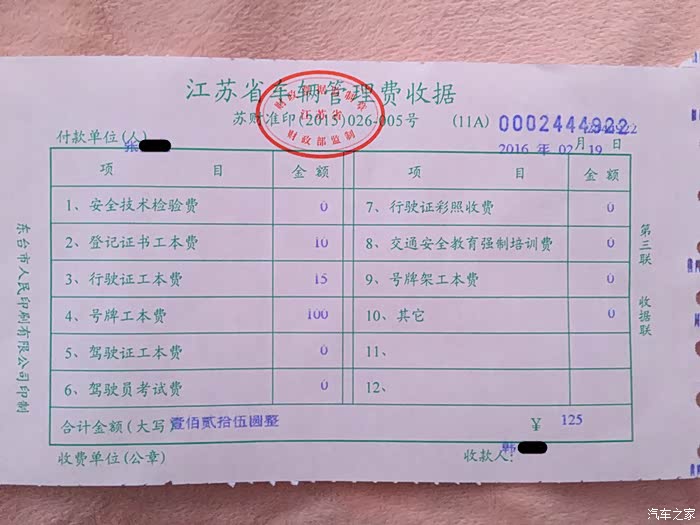 江苏省车辆管理费收据
苏财准印(2015)026-005号 (11A) 0002444922
付款单位(人)
2016 年 02 月 19 日
项 目 金 额 项 目 金 额
1、安全技术检验费 0 7、行驶证彩照收费 0
2、登记证书工本费 10 8、交通安全教育强制培训费 0
3、行驶证工本费 15 9、号牌架工本费 0
4、号牌工本费 100 10、其它 0
5、驾驶证工本费 0 11、
6、驾驶员考试费 0 12、
合计金额(大写)壹佰贰拾伍圆整 ¥ 125
收费单位(公章) 收款人: 韩
东台市人民印刷有限公司印制
第三联 收据联
江苏省
财政部监制
汽车之家